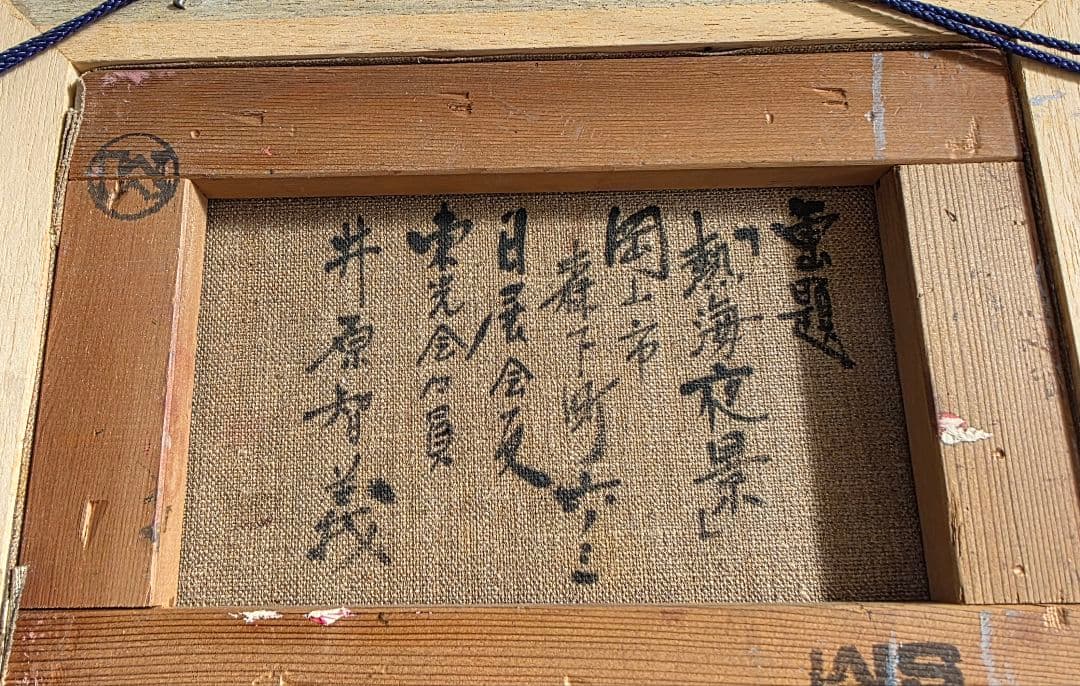 画題
「熱海夜景」
岡山市
森下町六ノ三
日展会友
東光会々員
井原智義